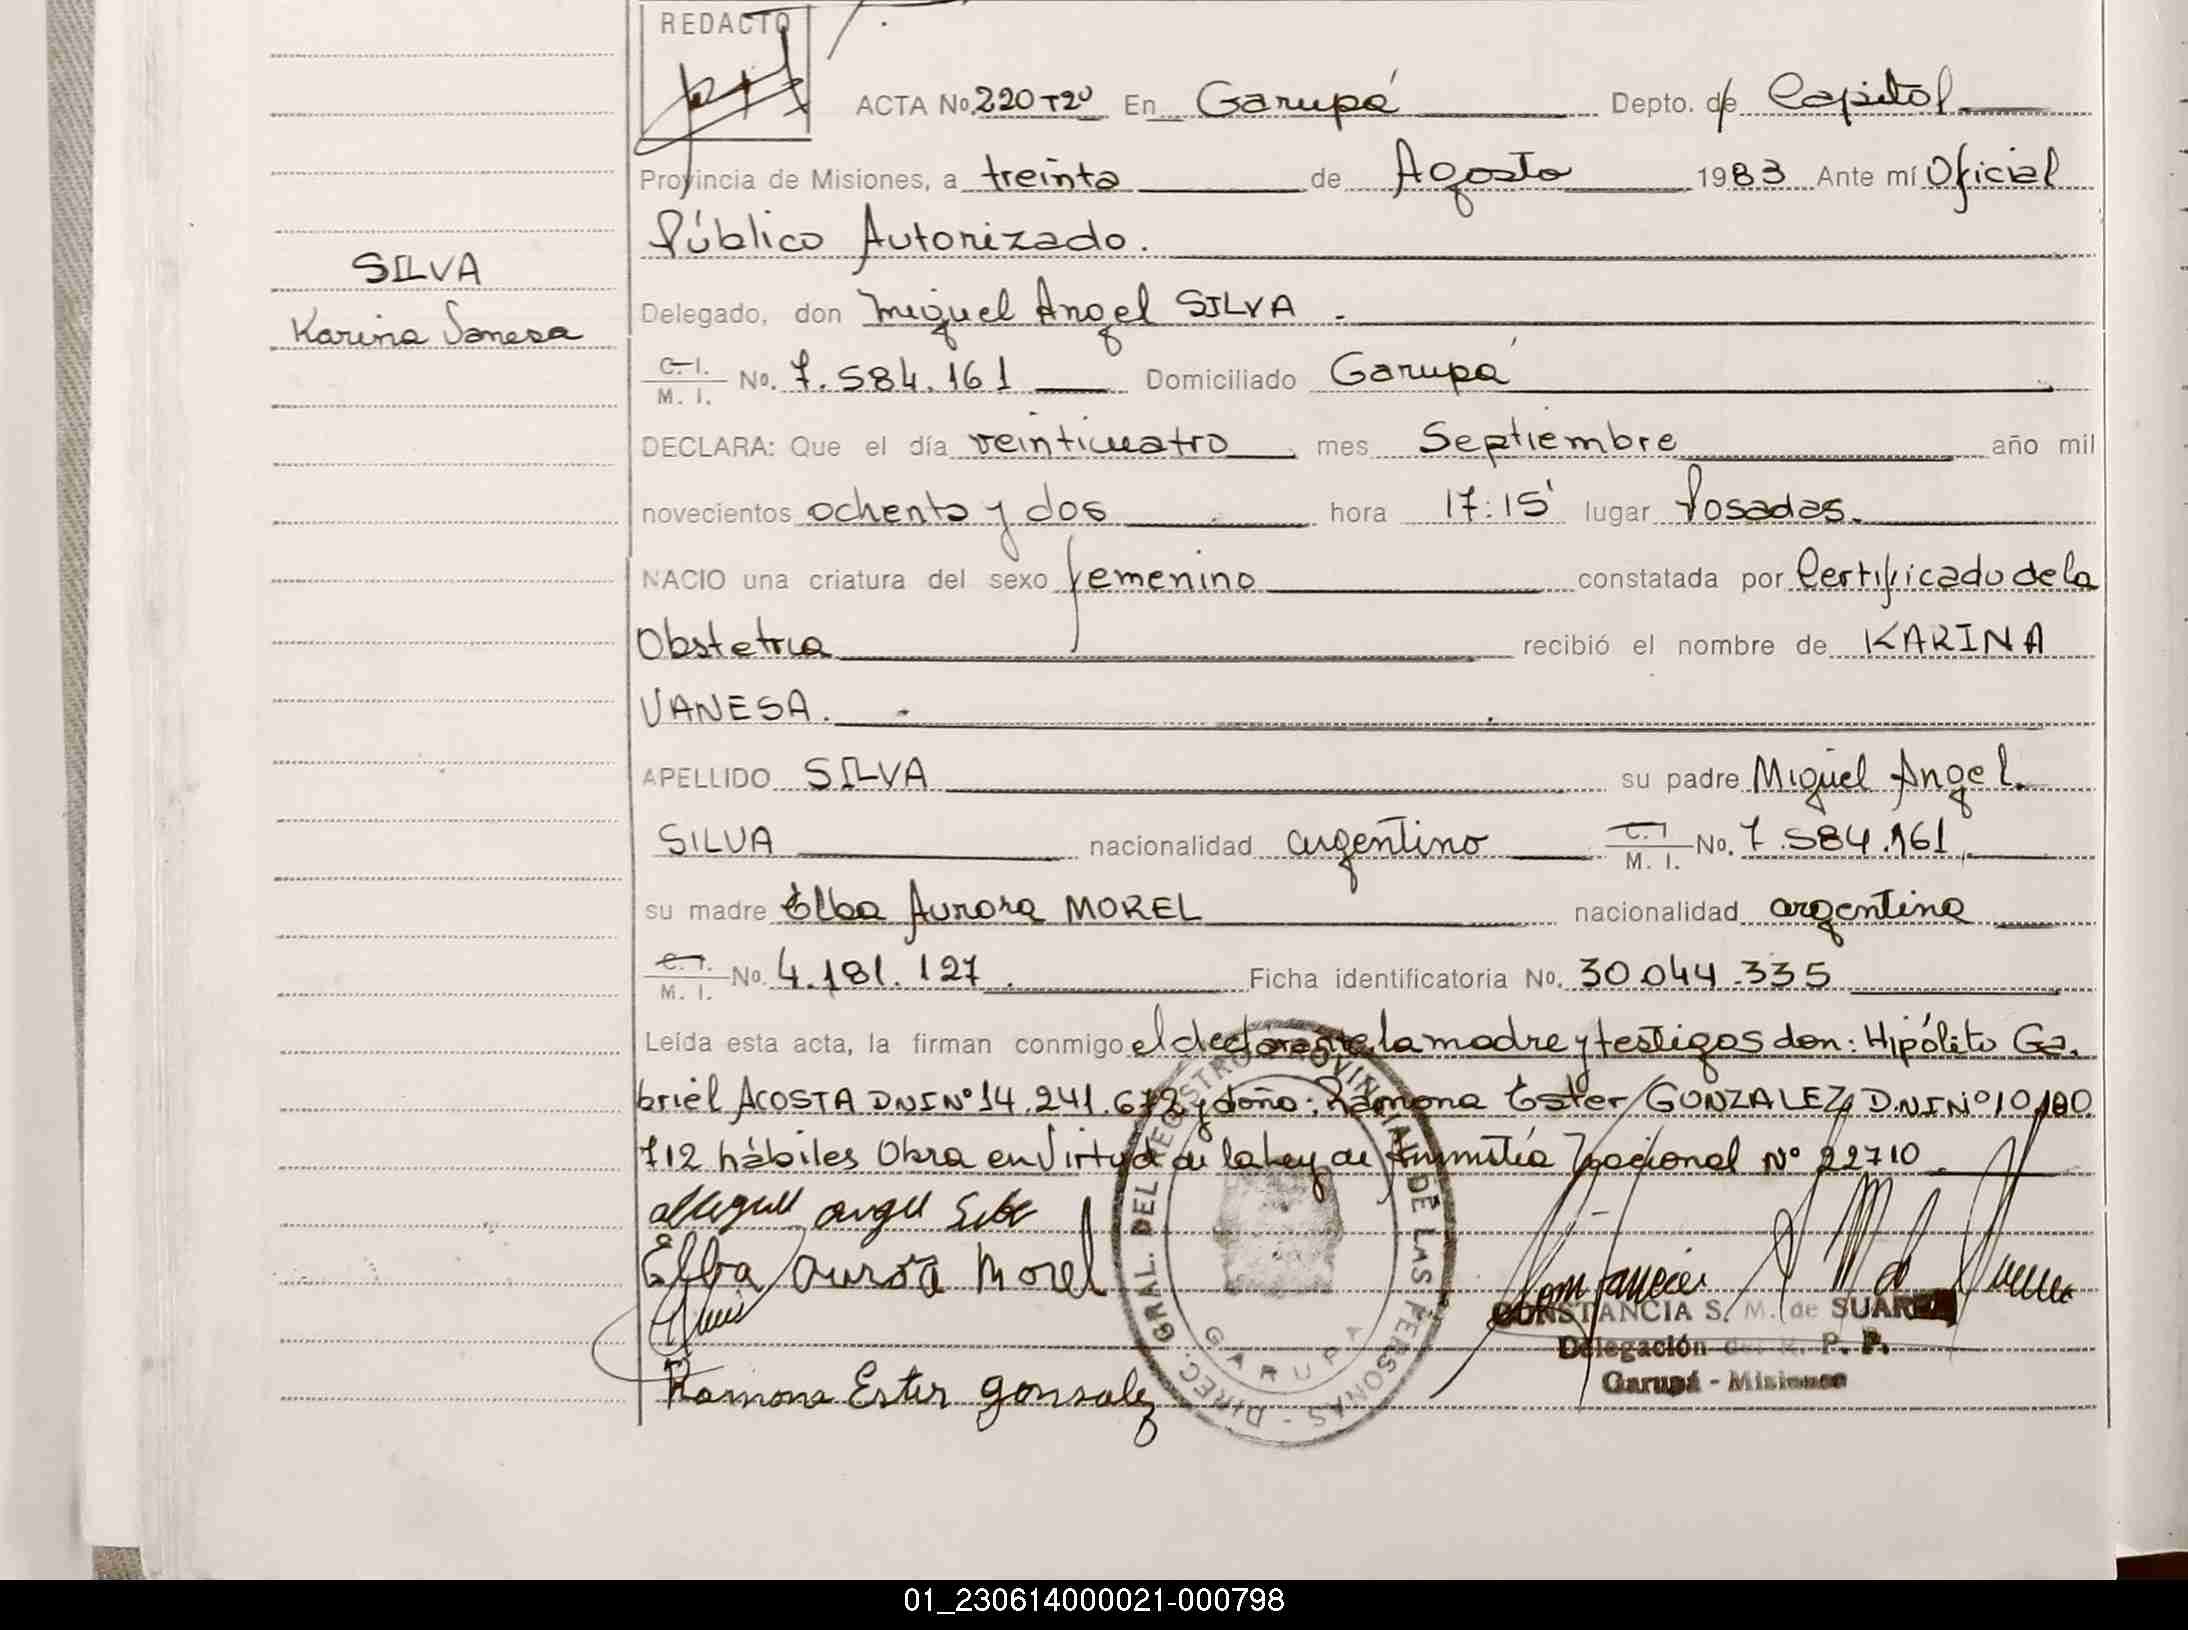 REDACTO
ACTA No. 220 Tº2º En Garupá Depto. de Capital
Provincia de Misiones, a treinta de Agosto 1983 Ante mí Oficial
Público Autorizado.
SILVA
Karina Vanesa
Delegado, don Miguel Angel SILVA
C. I.
M. I. No. 7.584.161 Domiciliado Garupá
DECLARA: Que el día veinticuatro mes Septiembre año mil
novecientos ochenta y dos hora 17:15' lugar Posadas.
NACIO una criatura del sexo femenino constatada por Certificado de la
Obstetria recibió el nombre de KARINA
VANESA.
APELLIDO SILVA su padre Miguel Angel
SILVA nacionalidad argentino C. I. M. I. No. 7.584.161
su madre Elba Aurora MOREL nacionalidad argentina
C. I.
M. I. No. 4.181.127 Ficha identificatoria No. 30.044.335
Leída esta acta, la firman conmigo el declarante, la madre y testigos don: Hipólito Ga.
briel ACOSTA DNI Nº 14.241.672 y doña: Ramona Ester GONZALEZ D.N.I Nº 10.100
712 hábiles Obra en Virtud de la Ley de Amnistía Nacional Nº 22710
Miguel angel Silva
Elba aurora Morel
Ramona Ester gonsalez
DIREC. GRAL. DEL REGISTRO PROVINCIAL DE LAS PERSONAS -
GARUPA
CONSTANCIA S. M. de SUAREZ
Delegación del R. P. P.
Garupá - Misiones
01_230614000021-000798